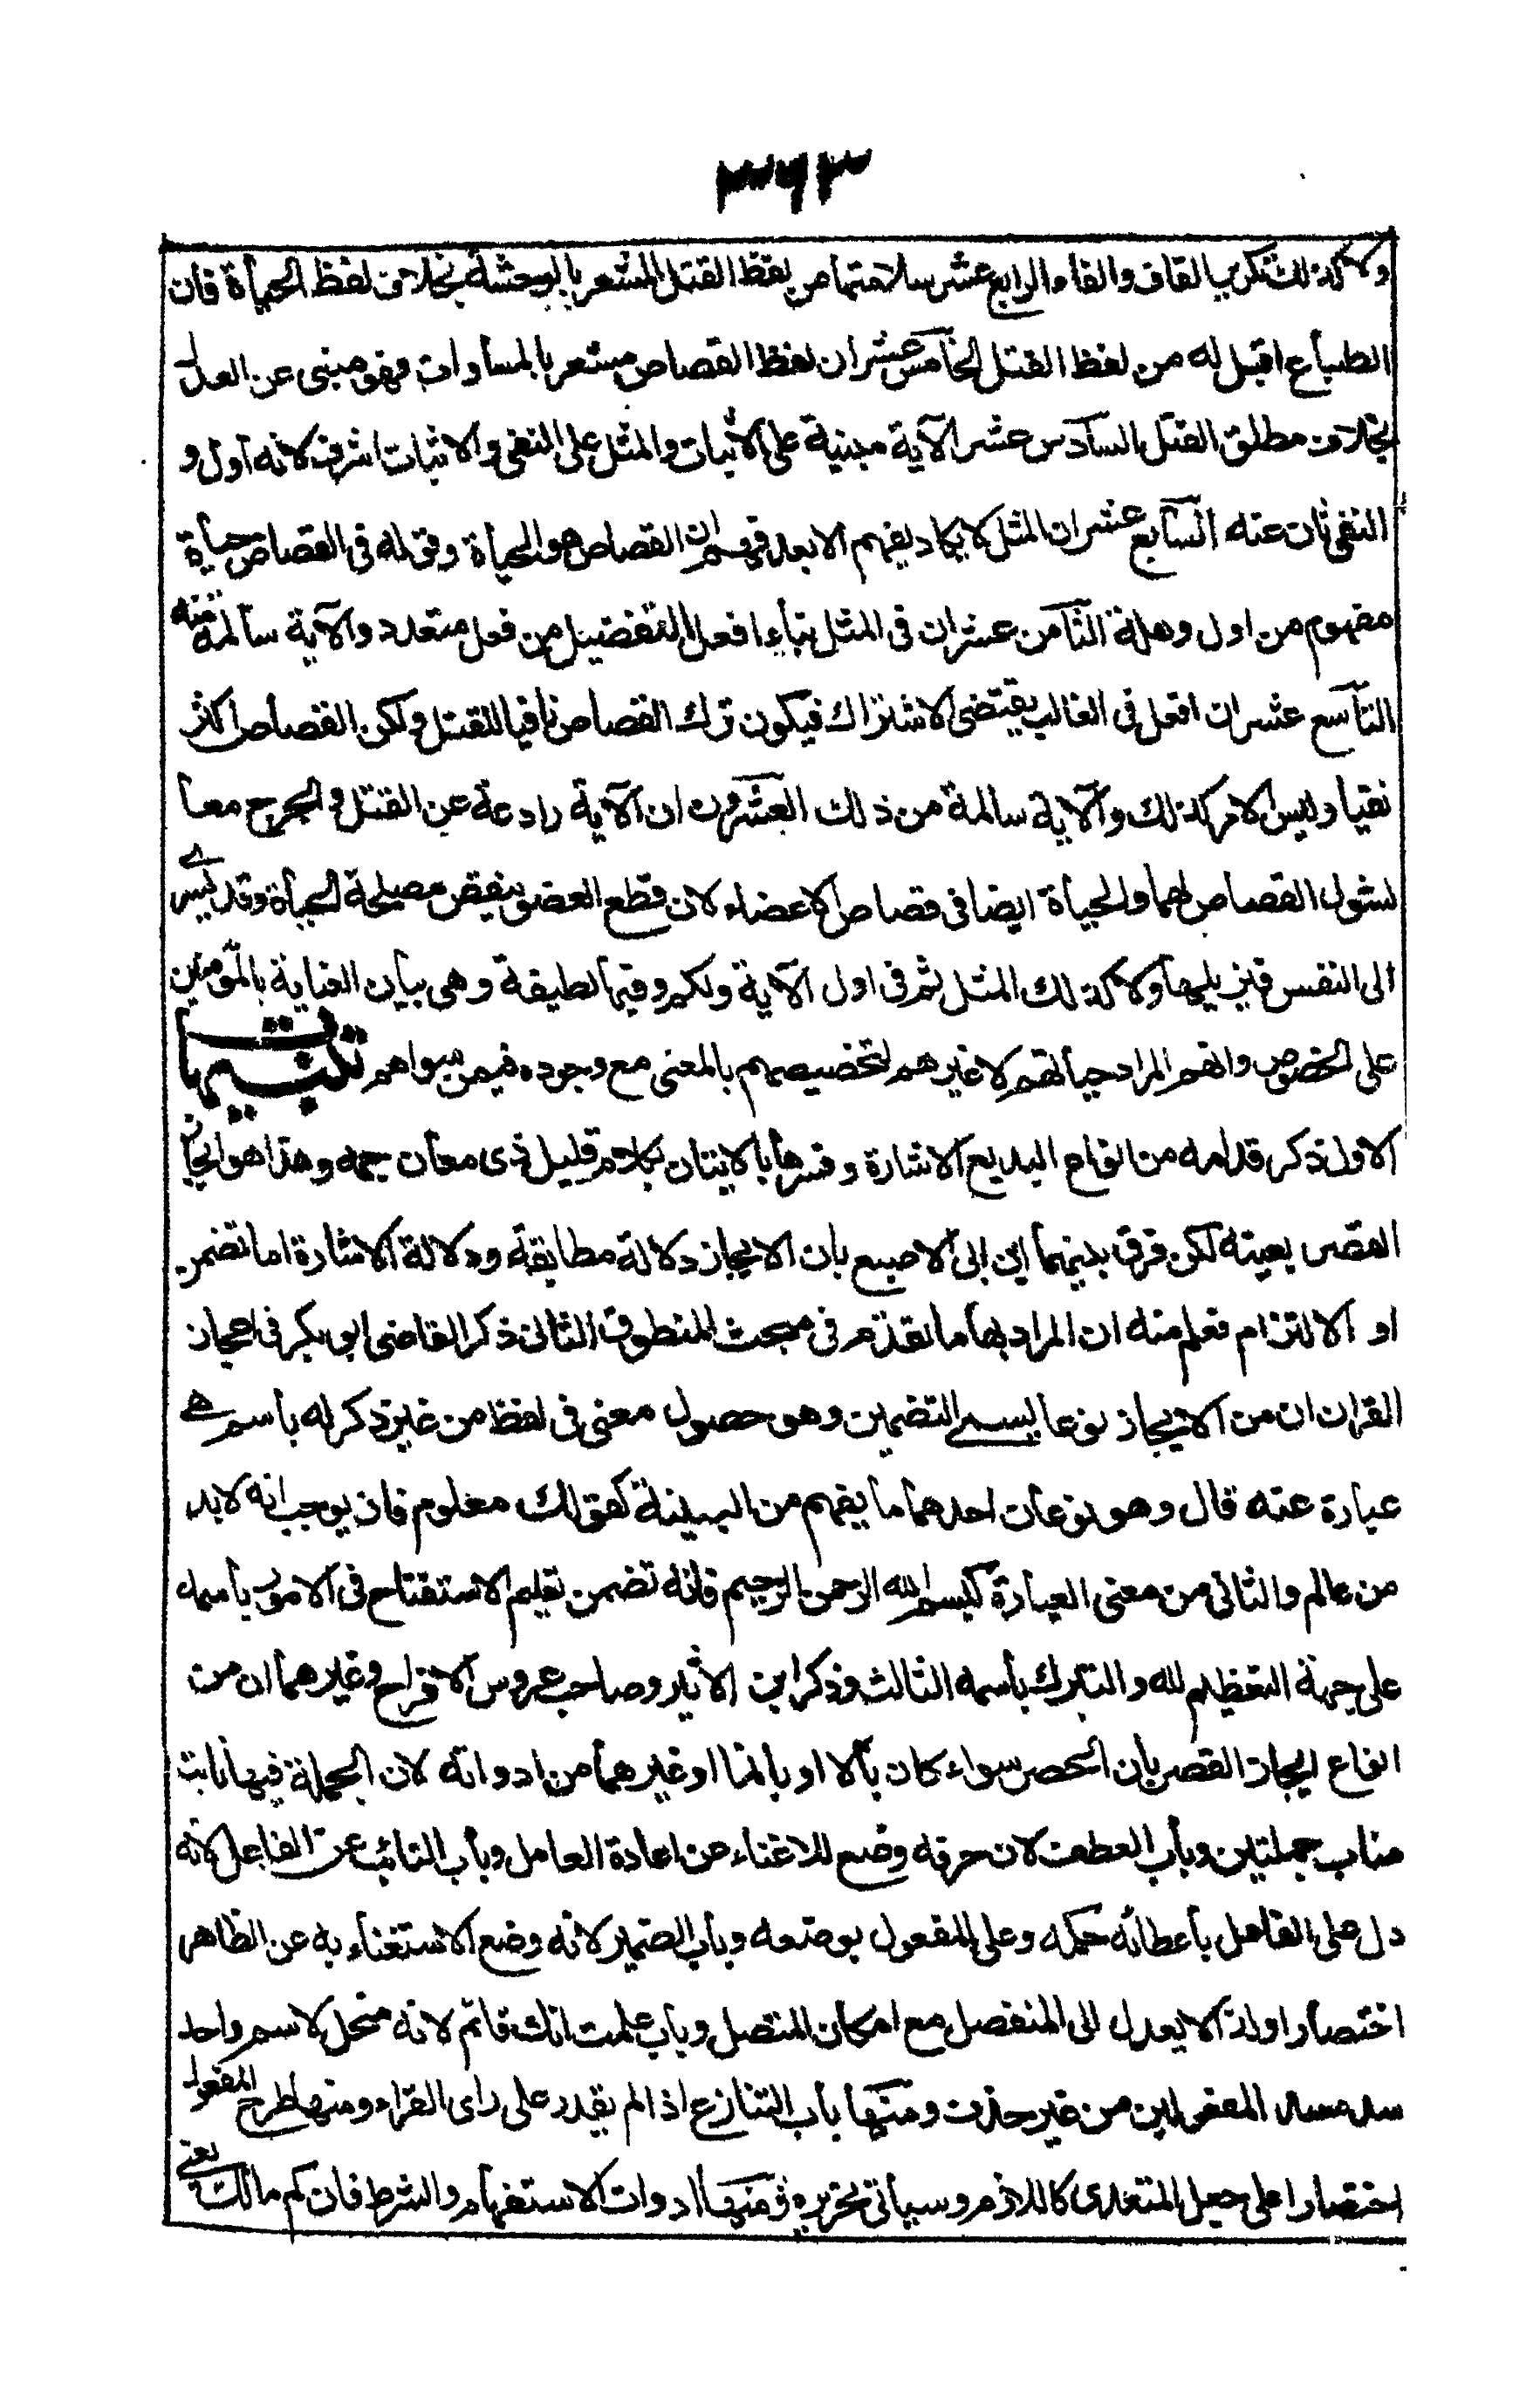 ٣٦٣
ولا كذلك تكرير القاف والفاء الرابع عشر سلامتها من لفظ القتل المشعر بالوحشة بخلاف لفظ الحيأة فان
الطباع اقبل له من لفظ القتل الخامس عشر ان لفظ القصاص مشعر بالمساوات فهو مبنى عن العدل
بخلاف مطلق القتل السادس عشر الآية مبنية على الاثبات والمثل على النفى والاثبات اشرف لانه اول و
النفى ثان عنه السابع عشر ان المثل لا يكاد يفهم الا بعد فهم ان القصاص هو الحيأة وقوله فى القصاص حيأة
مفهوم من اول وهلة الثامن عشر ان فى المثل بناء افعل التفضيل من فعل متعدد والآية سالمة منه
التاسع عشر ان افعل فى الغالب يقتضى الاشتراك فيكون ترك القصاص نافيا للقتل ولكن القصاص اكثر
نفيا وليس الامر كذلك والآية سالمة من ذلك العشرون ان الآية رادعة عن القتل والجرح معا
لشمول القصاص لهما والحيأة ايضا فى قصاص الاعضاء لان قطع العضو ينقص مصلحة الحيأة وقد يسرى
الى النفس فيزيلها ولا كذلك المثل ثم فى اول الآية ولكم وفيها لطيفة وهى بيان العناية بالمؤمنين
على الخصوص وانهم المراد حياتهم لا غيرهم لتخصيصهم بالمعنى مع وجوده فيمن سواهم تنبيهات
الاول ذكر قدامه من انواع البديع الاشارة وفسرها بالاتيان بكلام قليل ذى معان جمه وهذا هو ايجاز
القصر بعينه لكن فرق بينهما ابن ابى الاصبع بان الايجاز دلالة مطابقة ودلالة الاشارة اما تضمن
او الالتزام فعلم منه ان المراد بها ما تقدم فى مبحث المنطوق الثانى ذكر القاضى ابو بكر فى اعجاز
القران ان من الايجاز نوعا يسمى التضمين وهو حصول معنى فى لفظ من غير ذكر له باسم هى
عبارة عنه قال وهو نوعان احدهما ما يفهم من البينة كقولك معلوم فانه يوجب انه لابد
من عالم والثانى من معنى العبارة كبسم الله الرحمن الرحيم فانه تضمن تعليم الاستفتاح فى الامور باسمه
على جهة التعظيم لله والتبرك باسمه الثالث وذكر ابن الاثير وصاحب عروس الافراح وغيرهما ان من
انواع ايجاز القصر بان الحصر سواء كان بألا او بانما او غيرهما من ادواته لان الجملة فيها نابت
مناب جملتين وباب العطف لان حرفه وضع للاغناء عن اعادة العامل وباب النائب عن الفاعل لانه
دل على الفاعل باعطائه حكمه وعلى المفعول بوضعه وباب الضمير لانه وضع الاستغناء به عن الظاهر
اختصارا ولذا لا يعدل الى المنفصل مع امكان المتصل وباب علمت انك قائم لانه محل لاسم واحد
سد مسد المفعولين من غير حذف ومنها باب التنازع اذا لم يقدر على راى الفراء ومنها طرح المفعول
اختصارا على جعل المتعدى كاللازم وسياتى تحريره ومنها ادوات الاستفهام والشرط فان كم مالك يغنى